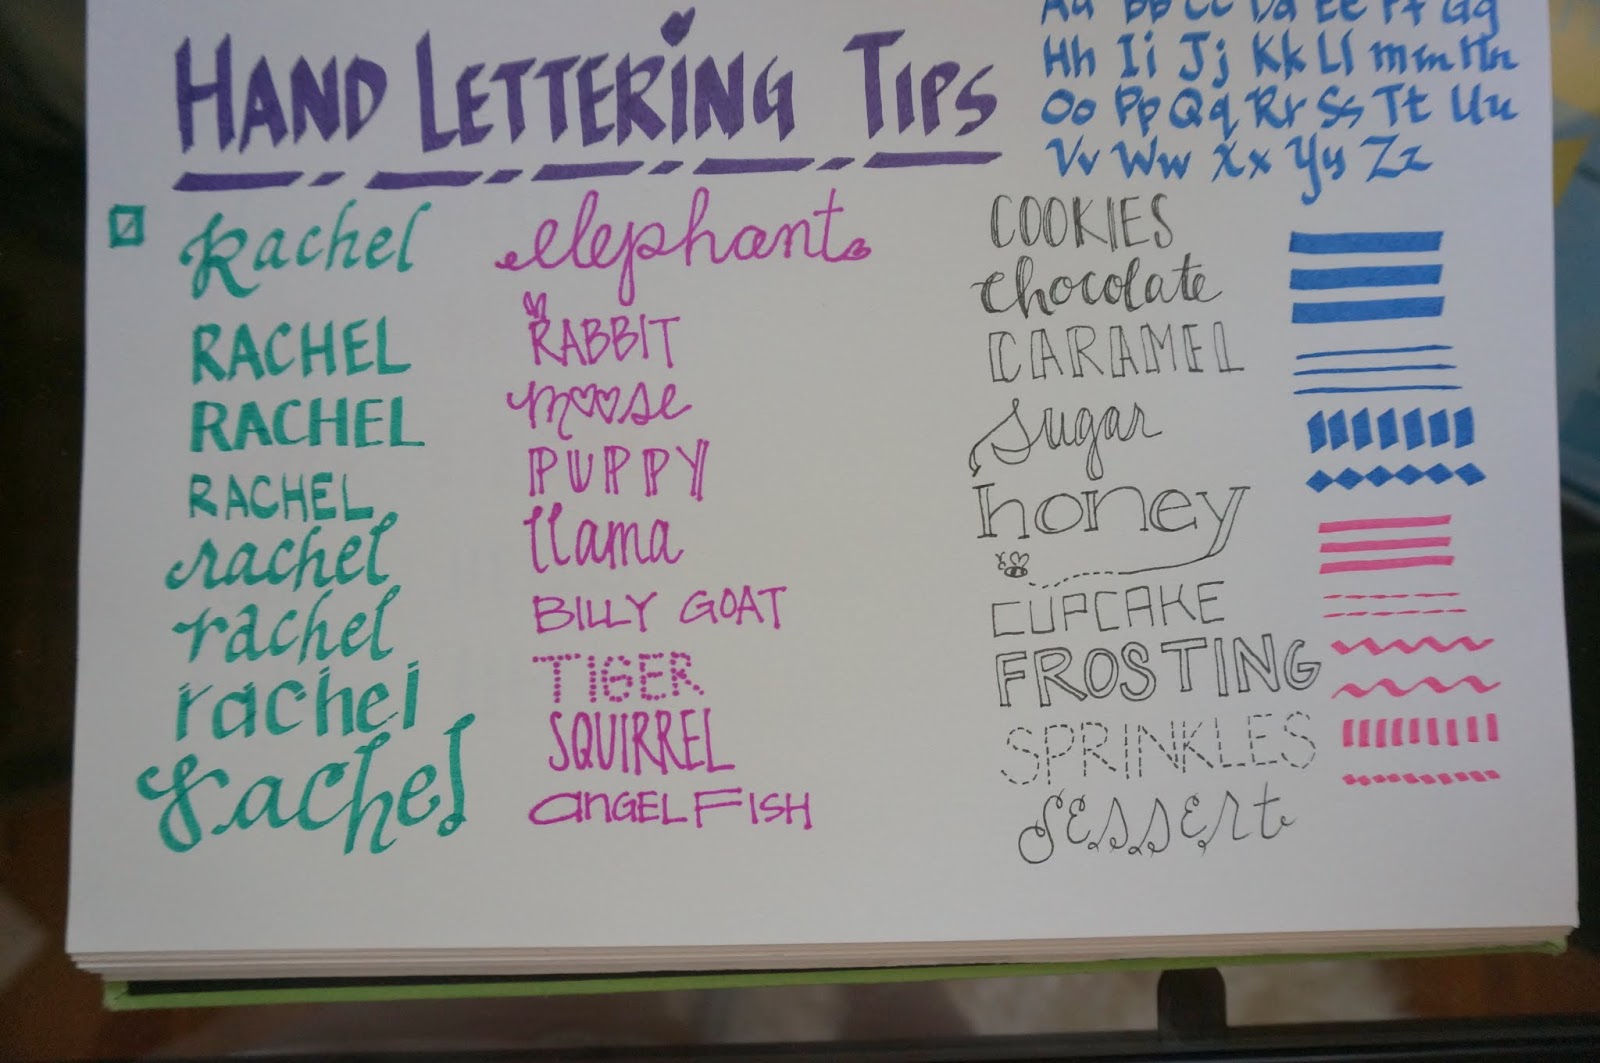 HAND LETTERING TIPS
Aa Bb Cc Dd Ee Ff Gg
Hh Ii Jj Kk Ll Mm Nn
Oo Pp Qq Rr Ss Tt Uu
Vv Ww Xx Yy Zz
Rachel
RACHEL
RACHEL
RACHEL
rachel
rachel
rachel
rachel
elephant
RABBIT
moose
PUPPY
llama
BILLY GOAT
TIGER
SQUIRREL
anGELFISH
COOKIES
chocolate
CARAMEL
sugar
honey
CUPCAKE
FROSTING
SPRINKLES
dessert